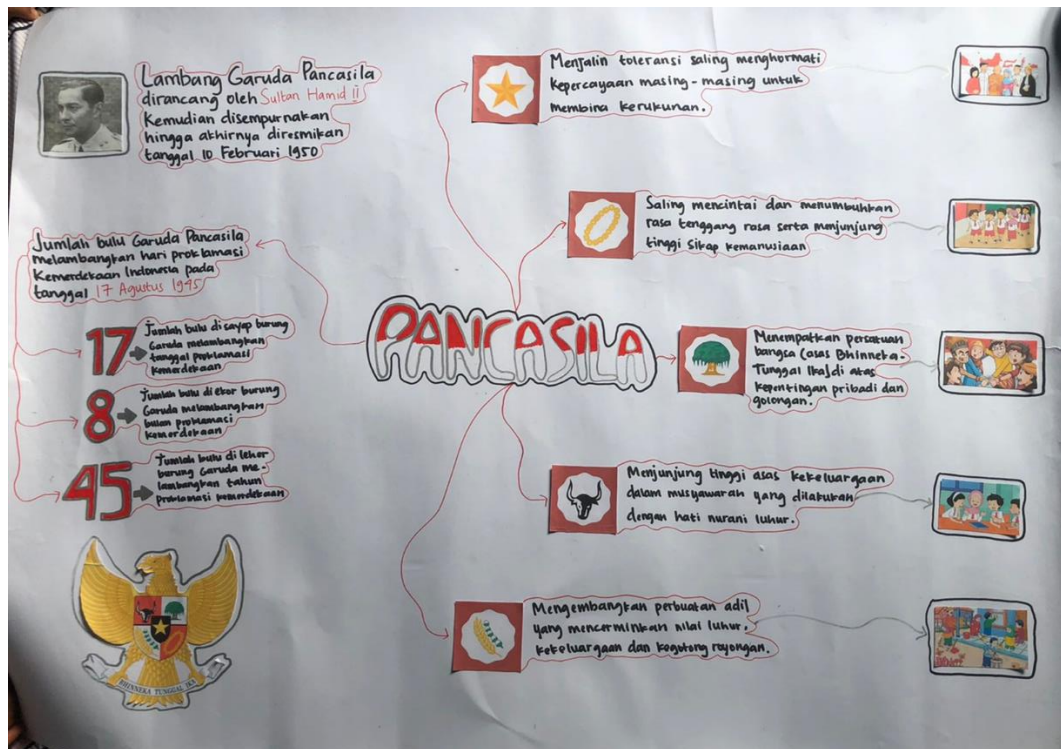 Lambang Garuda Pancasila
dirancang oleh Sultan Hamid II
Kemudian disempurnakan
hingga akhirnya diresmikan
tanggal 10 Februari 1950
Jumlah bulu Garuda Pancasila
melambangkan hari proklamasi
Kemerdekaan Indonesia pada
tanggal 17 Agustus 1945
17
Jumlah bulu di sayap burung
Garuda melambangkan
tanggal proklamasi
kemerdekaan
8
Jumlah bulu di ekor burung
Garuda melambangkan
bulan proklamasi
kemerdekaan
45
Jumlah bulu di leher
burung Garuda me-
lambangkan tahun
proklamasi kemerdekaan
BHINNEKA TUNGGAL IKA
PANCASILA
Menjalin toleransi saling menghormati
kepercayaan masing-masing untuk
membina kerukunan.
Saling mencintai dan menumbuhkan
rasa tenggang rasa serta menjunjung
tinggi sikap kemanusiaan
Menempatkan persatuan
bangsa (asas Bhinneka-
Tunggal Ika) di atas
kepentingan pribadi dan
golongan.
Menjunjung tinggi asas kekeluargaan
dalam musyawarah yang dilakukan
dengan hati nurani luhur.
Mengembangkan perbuatan adil
yang mencerminkan nilai luhur.
kekeluargaan dan kegotong royongan.